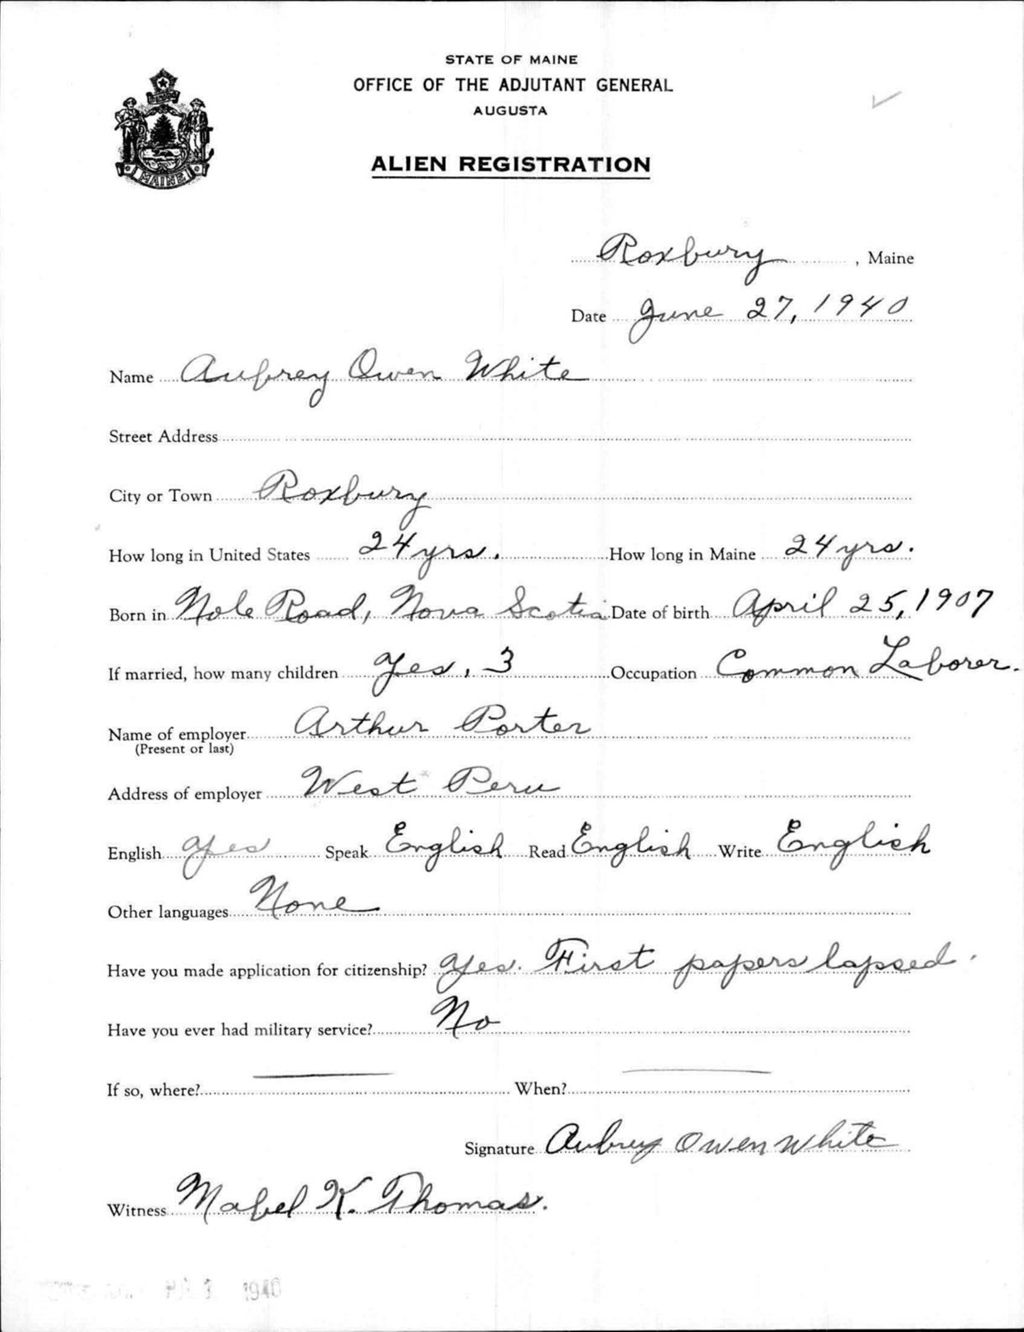 STATE OF MAINE
OFFICE OF THE ADJUTANT GENERAL
AUGUSTA
MAINE
ALIEN REGISTRATION
Roxbury, Maine
Date June 27, 1940
Name Aubrey Owen White
Street Address
City or Town Roxbury
How long in United States 24 yrs. How long in Maine 24 yrs.
Born in Nole Road, Nova Scotia Date of birth April 25, 1907
If married, how many children Yes, 3 Occupation Common Laborer.
Name of employer Arthur Porter
(Present or last)
Address of employer West Peru
English Yes Speak English Read English Write English
Other languages None
Have you made application for citizenship? Yes. First papers lapsed.
Have you ever had military service? No
If so, where? When?
Signature Aubrey Owen White
Witness Mabel K. Thomas.
1940